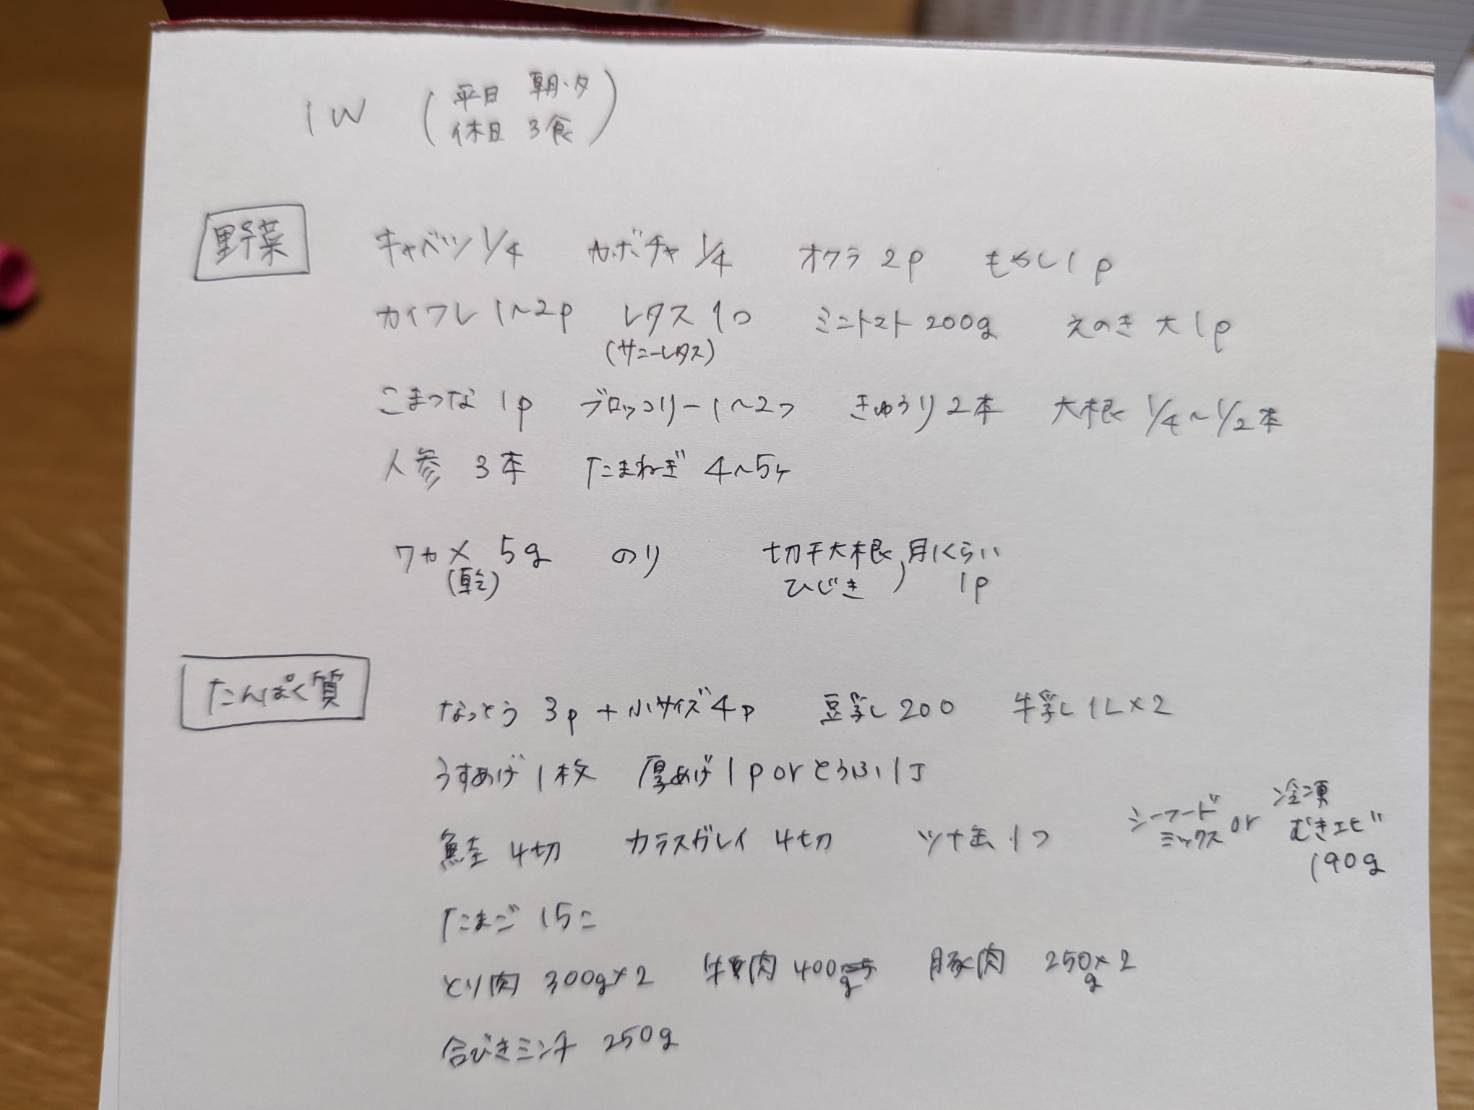 1W (平日 朝・夕
休日 3食)
野菜 キャベツ 1/4 カボチャ 1/4 オクラ 2p もやし 1p
カイワレ 1~2p レタス 1つ ミニトマト 200g えのき 大1p
(サニーレタス)
こまつな 1p ブロッコリー 1~2つ きゅうり 2本 大根 1/4~1/2本
人参 3本 たまねぎ 4~5ケ
ワカメ 5g のり 切干大根, 月1くらい
(乾) ひじき 1p
たんぱく質 なっとう 3p + 小サイズ 4p 豆乳 200 牛乳 1L×2
うすあげ 1枚 厚あげ 1p or とうふ 1丁
鮭 4切 カラスガレイ 4切 ツナ缶 1つ シーフードミックス or 冷凍むきエビ 190g
たまご 15こ
とり肉 300g×2 牛肉 400g 豚肉 250g×2
合びきミンチ 250g